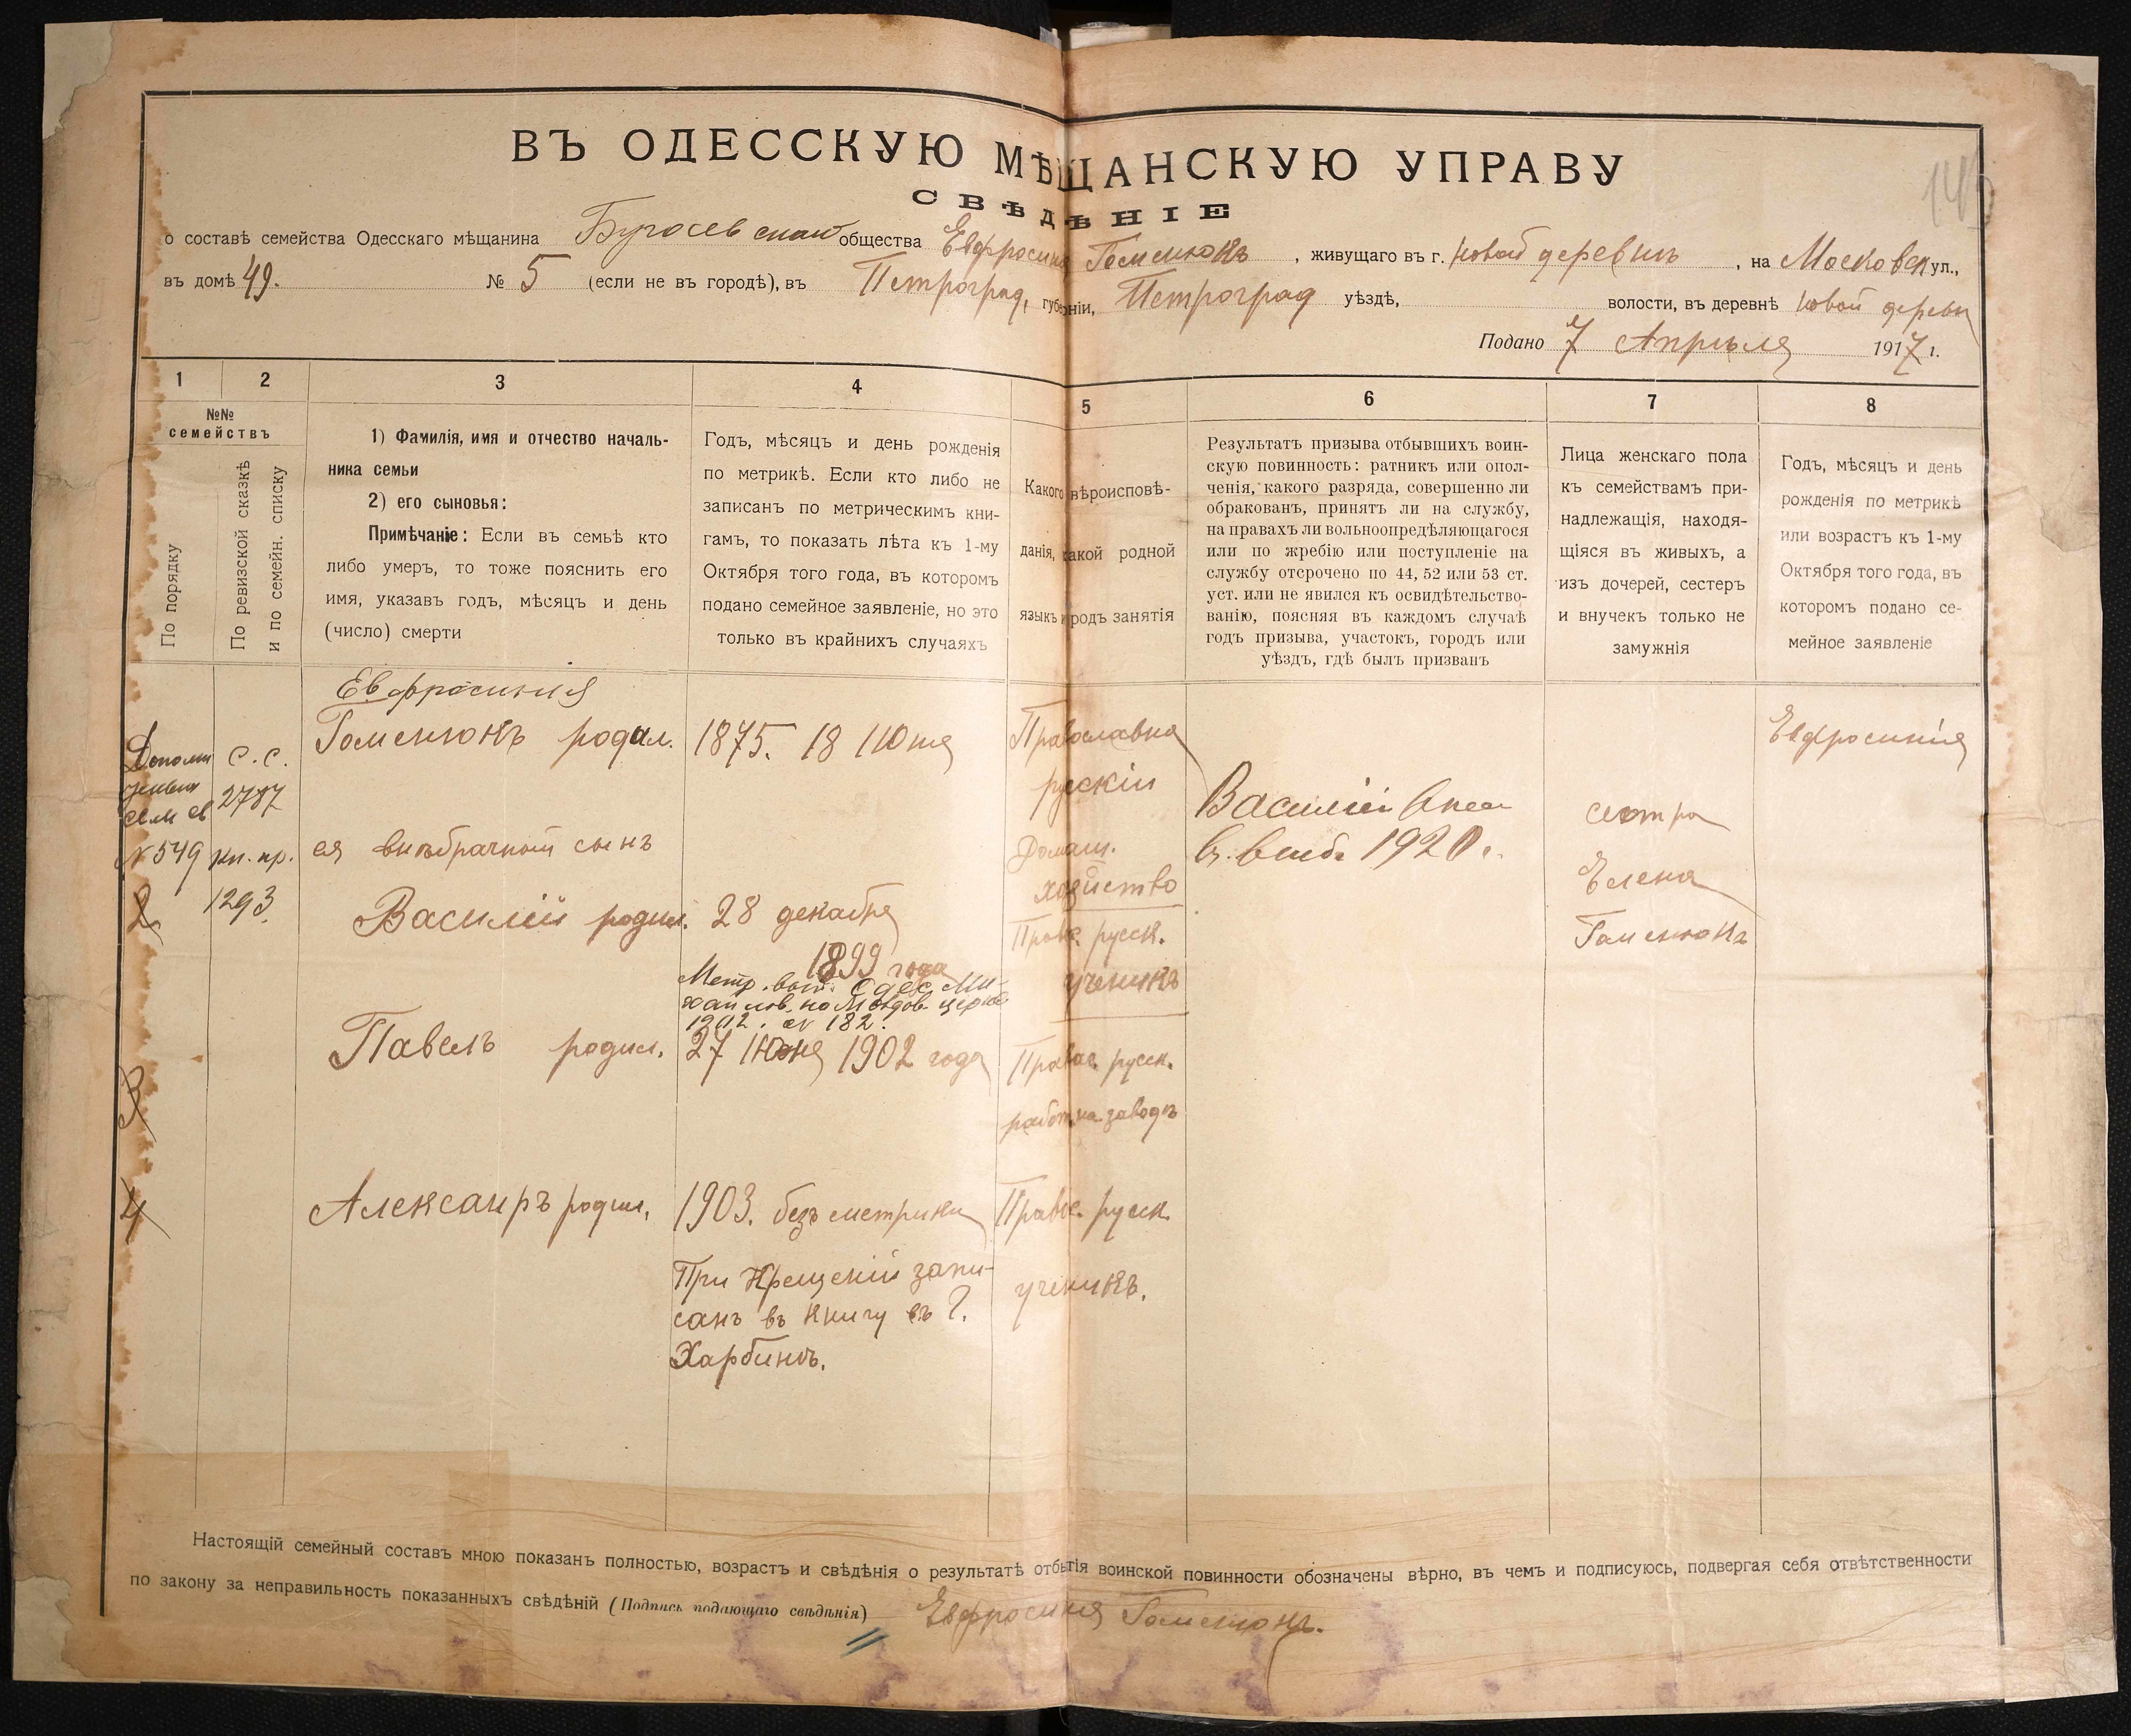 ВЪ ОДЕССКУЮ МѢЩАНСКУЮ УПРАВУ
СВѢДѢНІЕ
о составѣ семейства Одесскаго мѣщанина общества Евфросинія Гоменюкъ, живущаго въ г. Новой деревнѣ, на Московск ул.,
въ домѣ 49. № 5 (если не въ городѣ), въ Петроград. губерніи, Петроград уѣздѣ, волости, въ деревнѣ Новой деревн
Подано 7 Апрѣля 1917 г.
1 2 3 4 5 6 7 8
№№
семействъ
По порядку
По ревизской сказкѣ
и по семейн. списку
1) Фамилія, имя и отчество началь-
ника семьи
2) его сыновья:
Примѣчаніе: Если въ семьѣ кто
либо умеръ, то тоже пояснить его
имя, указавъ годъ, мѣсяцъ и день
(число) смерти
Годъ, мѣсяцъ и день рожденія
по метрикѣ. Если кто либо не
записанъ по метрическимъ кни-
гамъ, то показать лѣта къ 1-му
Октября того года, въ которомъ
подано семейное заявленіе, но это
только въ крайнихъ случаяхъ
Какого вѣроисповѣ-
данія, какой родной
языкъ и родъ занятія
Результатъ призыва отбывшихъ воин-
скую повинность: ратникъ или опол-
ченія, какого разряда, совершенно ли
обракованъ, принятъ ли на службу,
на правахъ ли вольноопредѣляющагося
или по жребію или поступленіе на
службу отсрочено по 44, 52 или 53 ст.
уст. или не явился къ освидѣтельство-
ванію, поясняя въ каждомъ случаѣ
годъ призыва, участокъ, городъ или
уѣздъ, гдѣ былъ призванъ
Лица женскаго пола
къ семействамъ при-
надлежащія, находя-
щіяся въ живыхъ, а
изъ дочерей, сестеръ
и внучекъ только не
замужнія
Годъ, мѣсяцъ и день
рожденія по метрикѣ
или возрастъ къ 1-му
Октября того года, въ
которомъ подано се-
мейное заявленіе
Евфросинія
Гоменюкъ родил. 1875. 18 Іюня Православна Евфросинія
русскій
С. С.
2787
№ 549 кн. пр.
1293.
ея внѣбрачный сынъ
Домаш.
хозяйство
Василій
1920 г.
сестра
Елена
Гоменюкъ
2 Василій родил. 28 декабря
1899 года
Правос. русск.
ученикъ
Метр. вып. Одес. Ми-
хайлов. церкви
1902. № 182.
3 Павелъ родил. 27 Іюня 1902 года Правос. русск.
работ. на заводѣ
4 Александръ родил. 1903. безъ метрики Правос. русск.
При Крещеніи запи-
санъ въ книгу въ Г.
Харбинъ.
ученикъ.
Настоящій семейный составъ мною показанъ полностью, возрастъ и свѣдѣнія о результатѣ отбытія воинской повинности обозначены вѣрно, въ чемъ и подписуюсь, подвергая себя отвѣтственности
по закону за неправильность показанныхъ свѣдѣній (Подпись подающаго свѣдѣнія) Евфросинія Гоменюкъ.